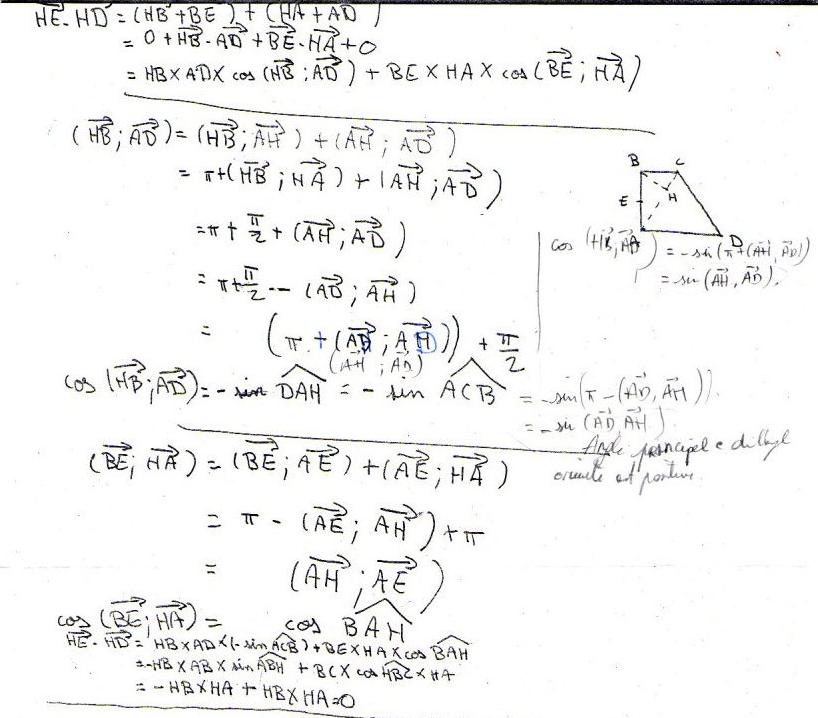 HE⃗. HD⃗ = (HB⃗ + BE⃗) + (HA⃗ + AD⃗)
= 0 + HB⃗ . AD⃗ + BE⃗ . HA⃗ + 0
= HB × AD × cos (HB⃗ ; AD⃗) + BE × HA × cos (BE⃗ ; HA⃗)
(HB⃗ ; AD⃗) = (HB⃗ ; AH⃗) + (AH⃗ ; AD⃗)
= π + (HB⃗ ; HA⃗) + (AH⃗ ; AD⃗)
= π + π/2 + (AH⃗ ; AD⃗)
= π + π/2 - - (AD⃗ ; AH⃗)
= (π + (AD⃗ ; AH⃗)) + π/2
(AH⃗ ; AD⃗)
B C
E H
D
cos (HB⃗, AD⃗) = - sin (π + (AH⃗, AD⃗))
= sin (AH⃗, AD⃗).
cos (HB⃗ ; AD⃗) = - sin DAH = - sin ACB = - sin (π - (AD⃗, AH⃗)).
= - sin (AD⃗, AH⃗)
Angle principal
orienté est positive.
(BE⃗ ; HA⃗) = (BE⃗ ; AE⃗) + (AE⃗ ; HA⃗)
= π - (AE⃗ ; AH⃗) + π
= (AH⃗ ; AE⃗)
cos (BE⃗ ; HA⃗) = cos BAH
HE⃗ . HD⃗ = HB × AD × (- sin ACB) + BE × HA × cos BAH
= - HB × AB × sin ABH + BC × cos HBC × HA
= - HB × HA + HB × HA = 0